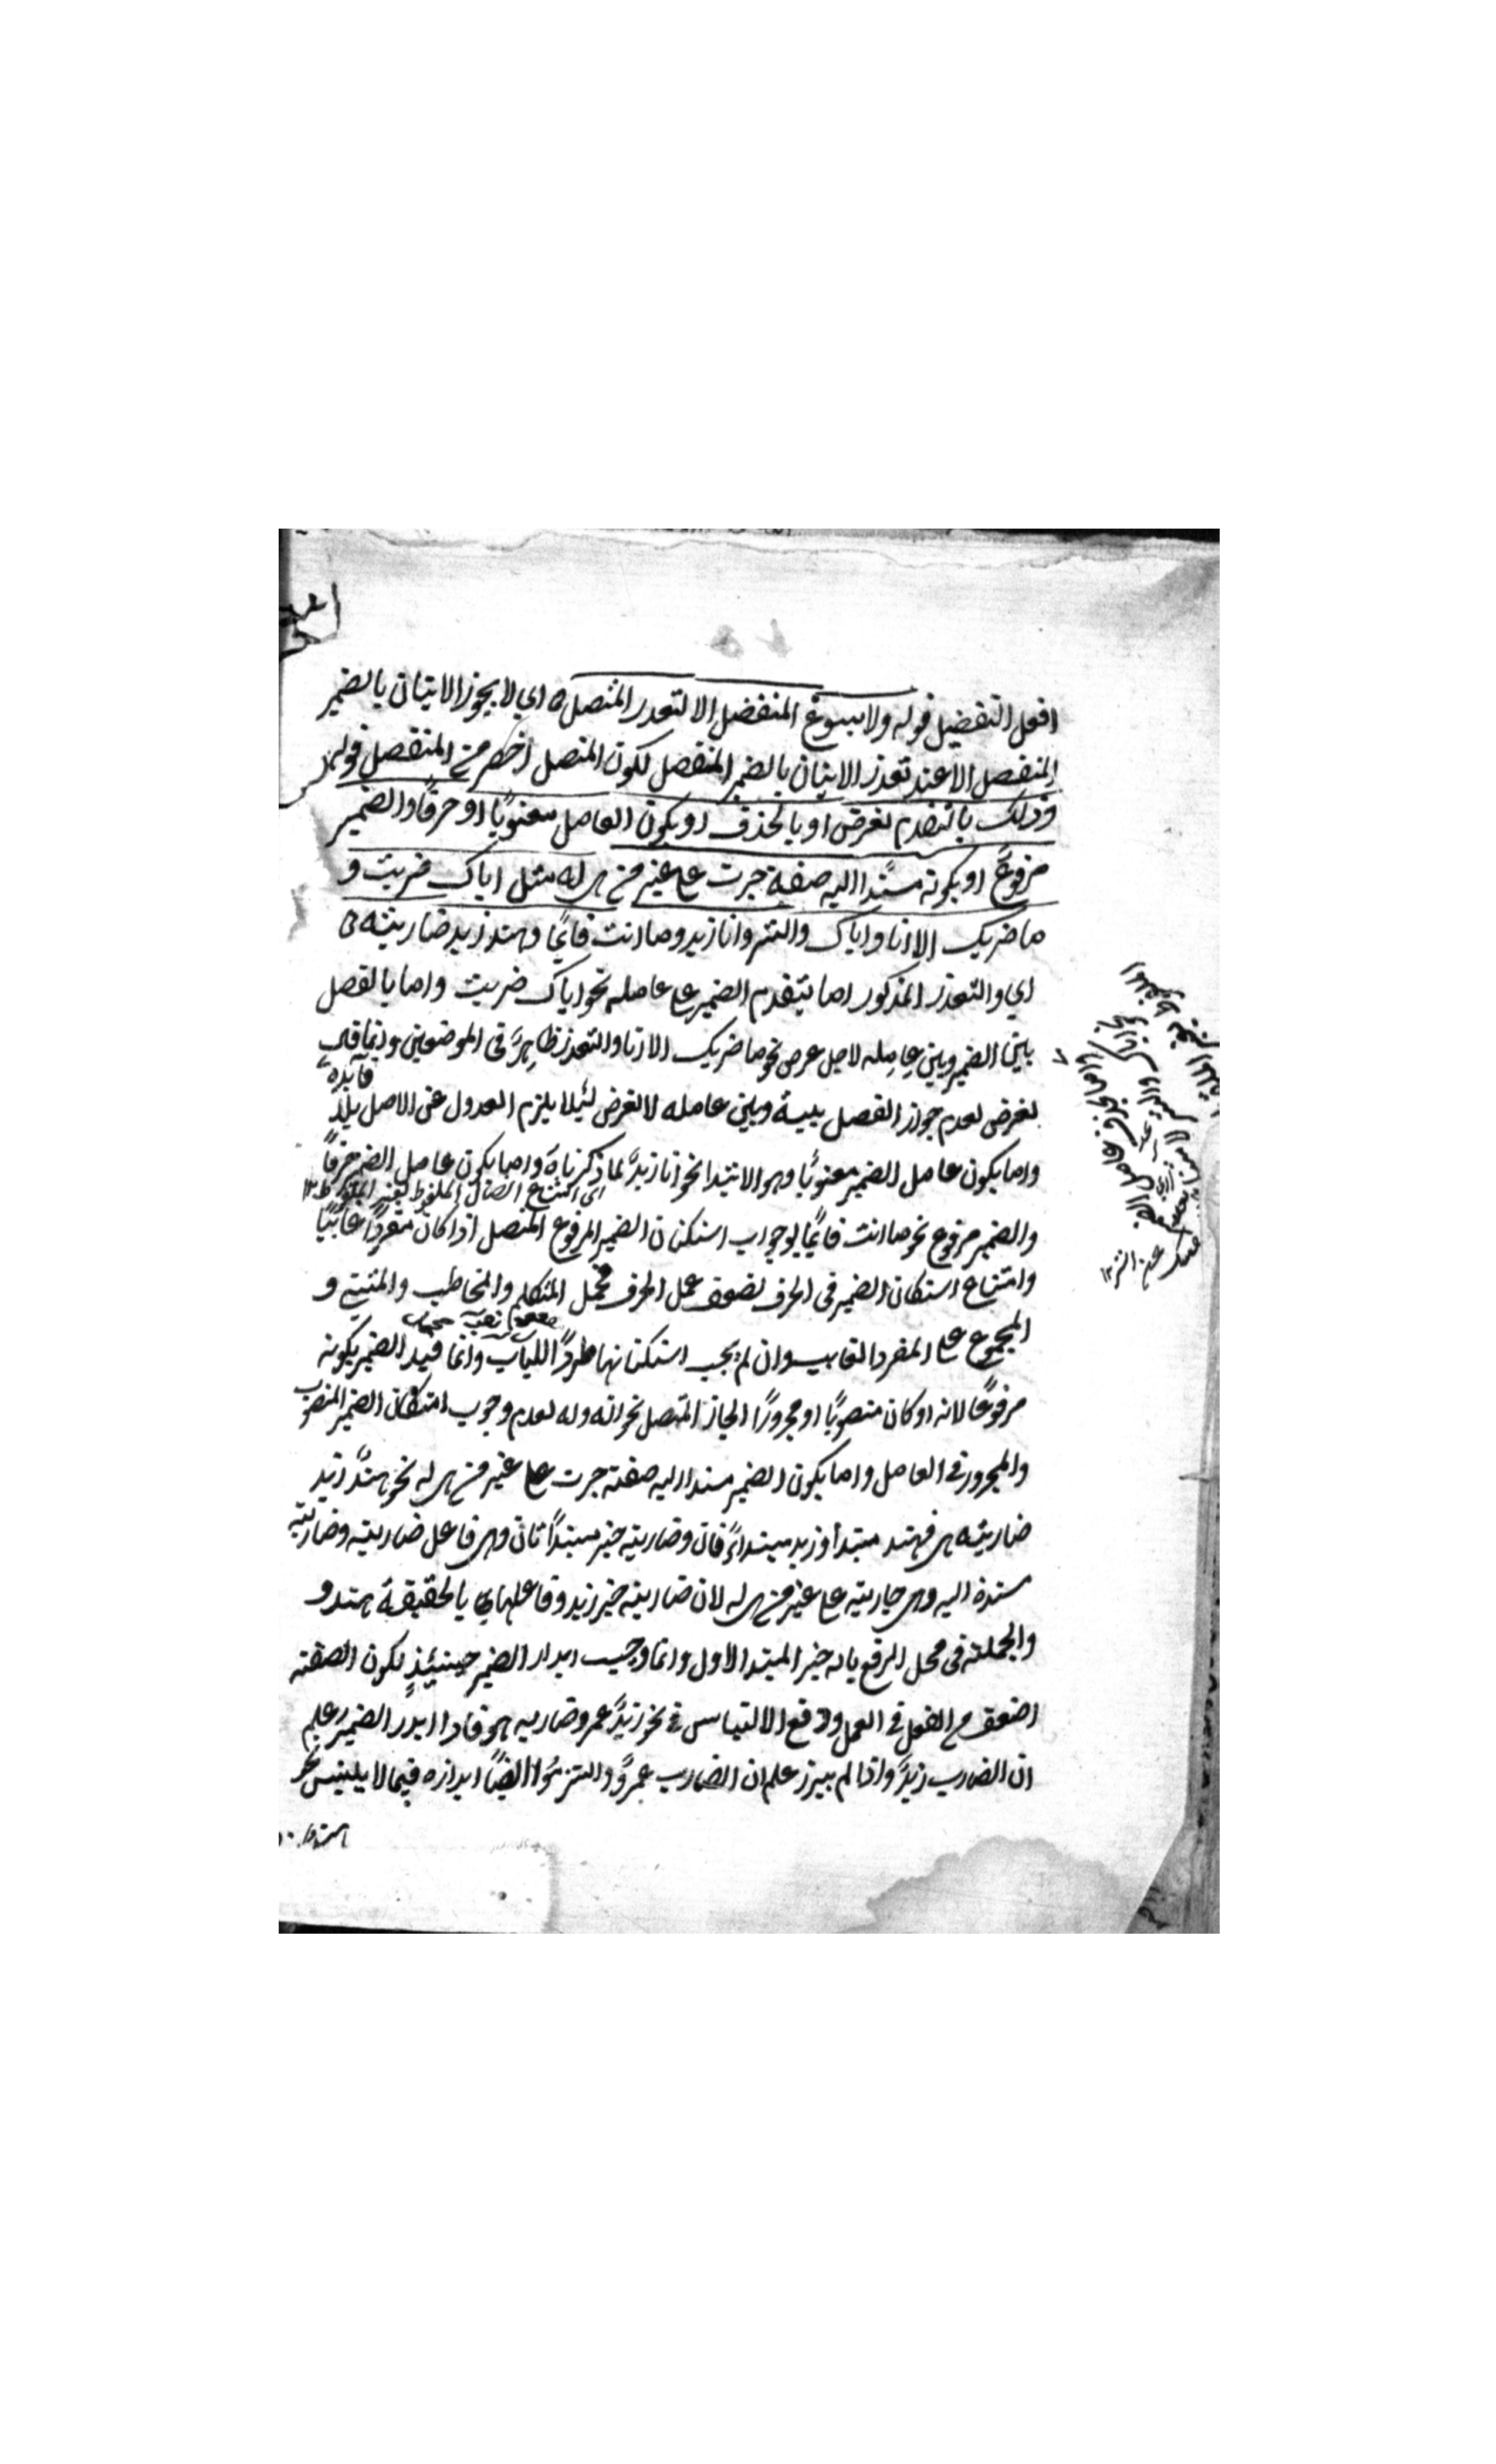 افعل التفضيل قوله ولا يسوغ المنفصل الا لتعذر المتصل ه اي لا يجوز الاتيان بالضمير
المنفصل الا عند تعذر الاتيان بالضمير المنفصل لكون المتصل اخصر من المنفصل قوله
وذلك بالتقدم لغرض او بالحذف او بكون العامل معنويًا او حرفًا والضمير
مرفوع او بكونه مسندًا اليه صفة جرت على غير من هى له مثل اياك ضربت و
ما ضربك الا انا واياك والشر وانا زيد وما انت قائمًا وهند زيد ضاربته هى
اي والتعذر المذكور اما بتقدم الضمير على عامله نحو اياك ضربت واما بالفصل
بين الضمير وبين عامله لاجل غرض نحو ما ضربك الا انا والتعذر ظاهر فى الموضعين وانما قال
لغرض لعدم جواز الفصل بينه وبين عامله لا لغرض لئلا يلزم العدول عن الاصل بلا
فائدة
واما بكون عامل الضمير معنويًا وهو الابتداء نحو انا زيدٌ لما ذكرناه واما بكون عامل الضمير حرفًا
اى امتناع اتصال الملفوظ بغير الملفوظ ١٢
والضمير مرفوع نحو ما انت قائمًا لوجوب استكنان الضمير المرفوع المتصل اذا كان مفردًا غائبًا
وامتناع استكنان الضمير فى الحرف لضعف عمل الحرف فحمل المتكلم والمخاطب والمثنى و
المجموع على المفرد الغايب وان لم يجب استكنانها طردًا للباب وانما قيد الضمير بكونه
مرفوعًا لانه لو كان منصوبًا او مجرورًا لجاز المتصل نحو انه وله لعدم وجوب استكنان الضمير المنصوب
والمجرور فى العامل واما بكون الضمير مسندا اليه صفة جرت على غير من هى له نحو هندٌ زيد
ضاربته هى فهند مبتدأ وزيد مبتداء ثان وضاربته خبر مبتدأ ثان وهى فاعل ضاربته وضاربته
مسندة اليه وهى جارية على غير من هى له لان ضاربته خبر زيد وفاعلها هى بالحقيقة هند و
والجملة فى محل الرفع بانه خبر المبتدا الاول وانما وجب ابراز الضمير حينئذٍ لكون الصفة
اضعف من الفعل فى العمل ولدفع الالتباس فى نحو زيدٌ عمرو ضاربه هو فاذا ابرز الضمير علم
ان الضارب زيدٌ واذا لم يبرز علم ان الضارب عمرٌو والتزموا ايضًا ابرازه فيما لا يلتبس نحو